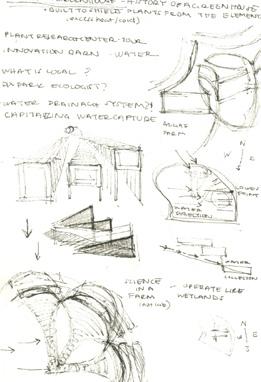 GREENHOUSE - HISTORY OF A GREENHOUSE
- BUILT TO SHIELD PLANTS FROM THE ELEMENTS
(excess heat/cold)
PLANT RESEARCH CENTER - TOUR
INNOVATION BARN - WATER
WHAT IS LOCAL?
PARK ECOLOGIST?
WATER DRAINAGE SYSTEM?
CAPITALIZING WATER CAPTURE
FARM
N
W
E
S
LOWER
POINT
WATER
DIRECTION
WATER
COLLECTION
SCIENCE
IN A
FARM
- OPERATE LIKE
WETLANDS
N
E
S